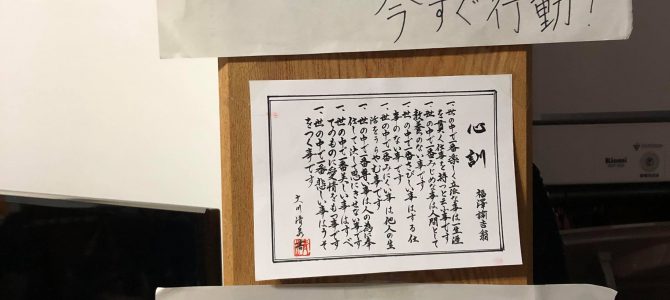 今すぐ行動!
心訓
福澤諭吉翁
一、世の中で一番楽しく立派な事は一生涯
を貫く仕事を持つと云う事です
一、世の中で一番みじめな事は人間として
教養のない事です
一、世の中で一番さびしい事はする仕
事のない事です
一、世の中で一番みにくい事は他人の生
活をうらやむ事です
一、世の中で一番尊い事は人の為に奉
仕して決して恩にきせない事です
一、世の中で一番美しい事はすべ
てのものに愛情をもつ事です
一、世の中で一番悲しい事はうそ
をつく事です
Rinnai